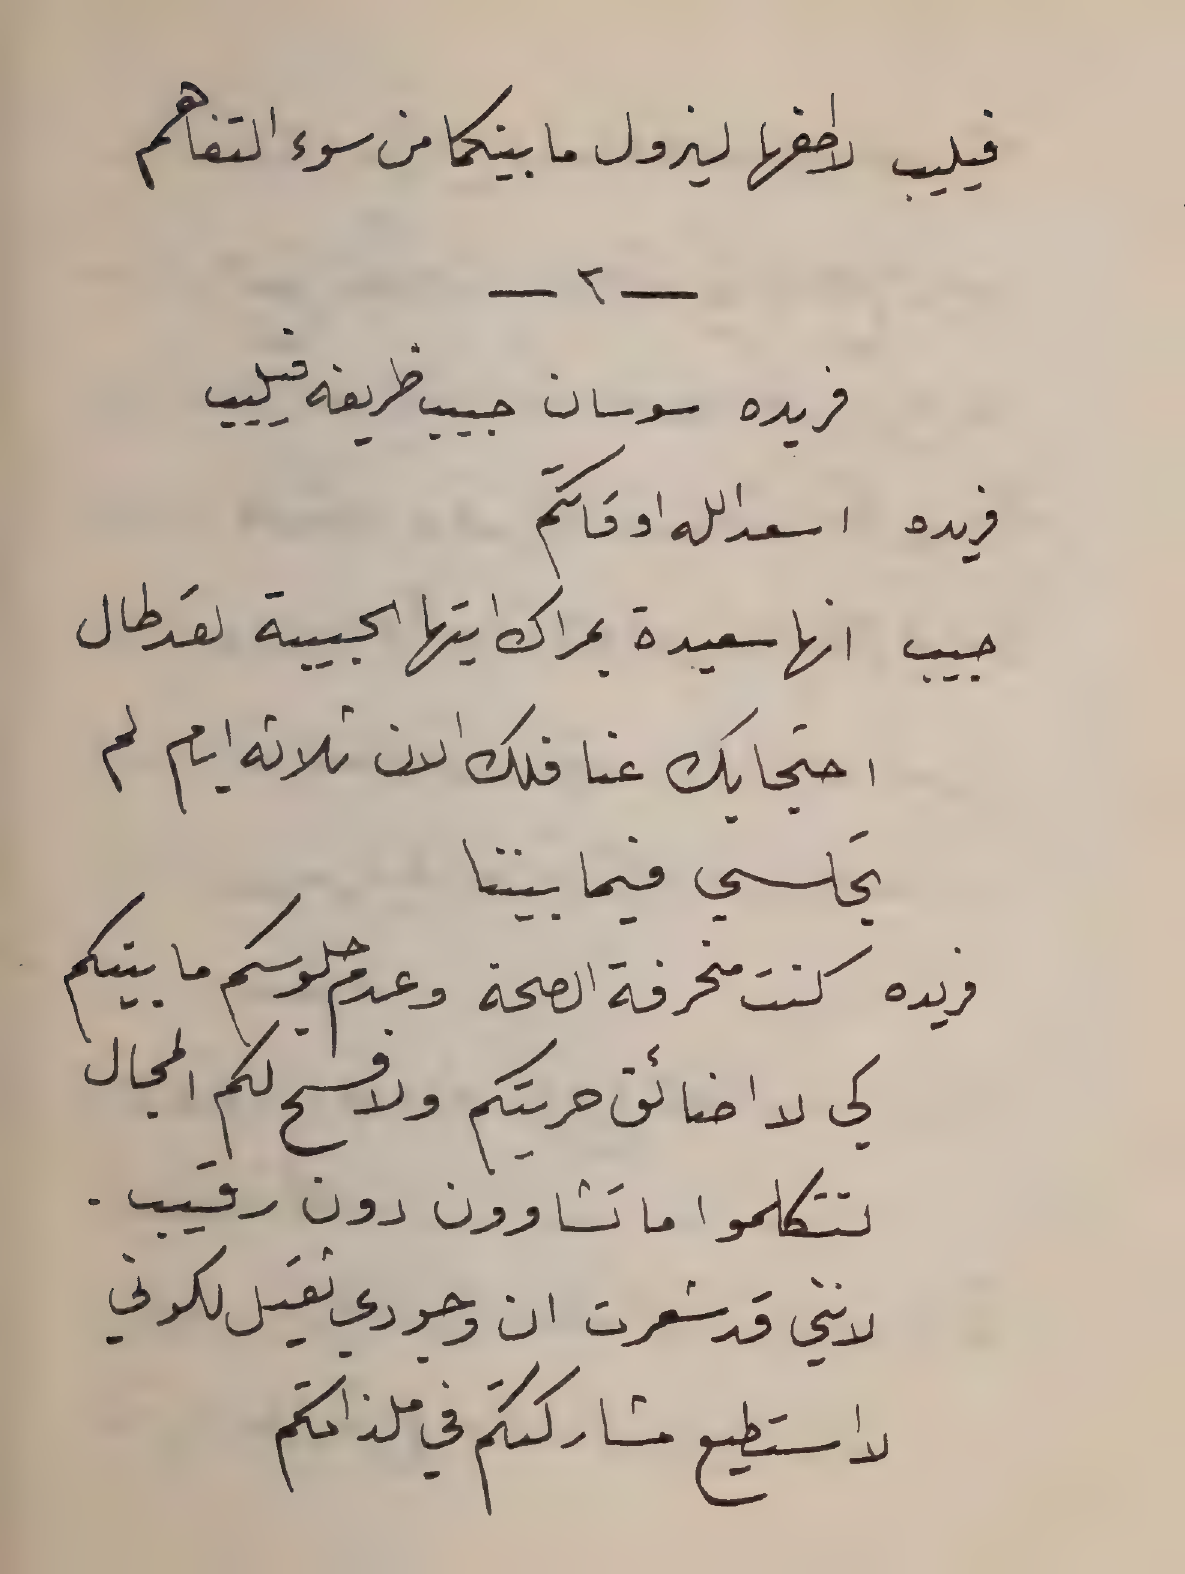 فيليب لاطفها ليزول ما بينكما من سوء التفاهم
— ٢ —
فريده سوسان حبيب ظريفه فيليب
فريده اسعد الله اوقاتكم
حبيب انها سعيدة بمراك ايتها الحبيبة لقد طال
احتجابك عنا فلك الان ثلاثه ايام لم
تجلسي فيما بيننا
فريده كنت منحرفة الصحة وعدم جلوسكم ما بينكم
كي لا اضائق حريتكم ولافسح لكم المجال
لتتكلموا ما تشاوون دون رقيب .
لانني قد شعرت ان وجودي ثقيل لكوني
لا استطيع مشاركتكم في ملذاتكم